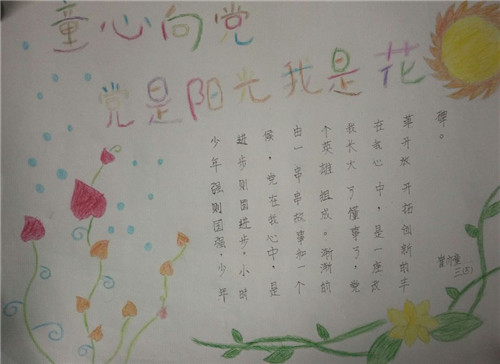 童心向党
党是阳光我是花
少年强则国强,少年
进步则国进步。小时
候,党在我心中,是
由一串串故事和一个
个英雄组成。渐渐的
我长大了懂事了,党
在我心中,是一座改
革开放 开拓创新的丰
碑。